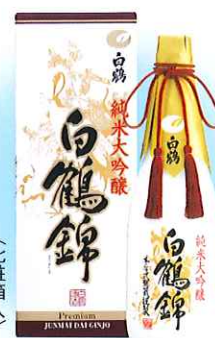 白鶴
純米大吟醸
白鶴錦
Premium
JUNMAI DAI GINJO
白鶴
純米大吟醸
白鶴錦